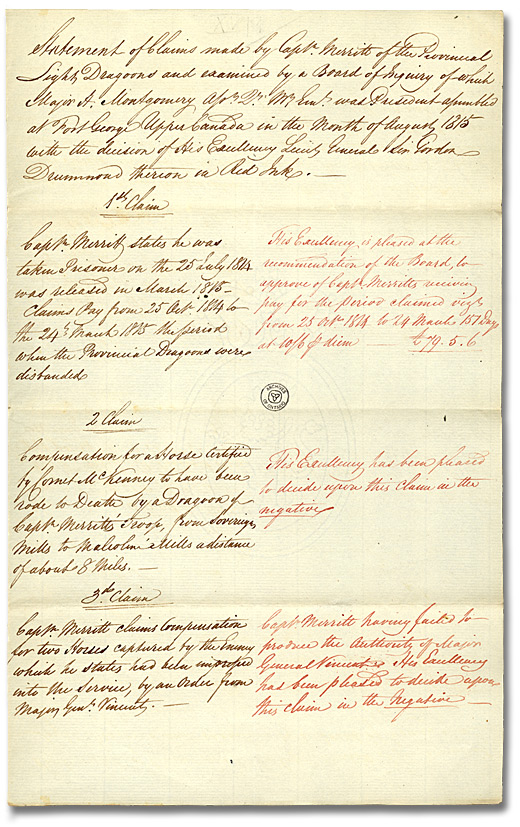 Statement of Claims made by Captn. Merritt of the Provincial
Light Dragoons and examined by a Board of Inquiry of which
Major A. Montgomery Asst. Qr. Mr. Genl. was President assembled
at Fort George Upper Canada in the Month of August 1815
with the decision of His Excellency Lieut. General Sir Gordon
Drummond thereon in Red Ink. —
1st Claim
Captn. Merritt states he was
taken Prisoner on the 25 July 1814
was released in March 1815.
Claims Pay from 25 Octr. 1814 to
the 24th March 1815 the period
when the Provincial Dragoons were
disbanded
His Excellency is pleased at the
recommendation of the Board, to
approve of Captn. Merritts receiving
pay for the period claimed
from 25 Octr. 1814 to 24 March 151 Days
at 10/6 ⅌ diem — £79.5.6
ARCHIVES
OF ONTARIO
2 Claim
Compensation for a Horse Certified
by Cornet McKenney to have been
rode to Death by a Dragoon of
Captn. Merritts Troop, from Sovereign
Mills to Malcolms Mills a distance
of about 8 Miles. —
His Excellency has been pleased
to decide upon this claim in the
negative
3rd. Claim
Captn. Merritt claims Compensation
for two Horses captured by the Enemy
which he States had been impressed
into the Service, by an Order from
Major Genl. Vincent. —
Captn. Merritt having failed to
produce the Authority of Major
General Vincent His Excellency
has been pleased to decide upon
this claim in the Negative —